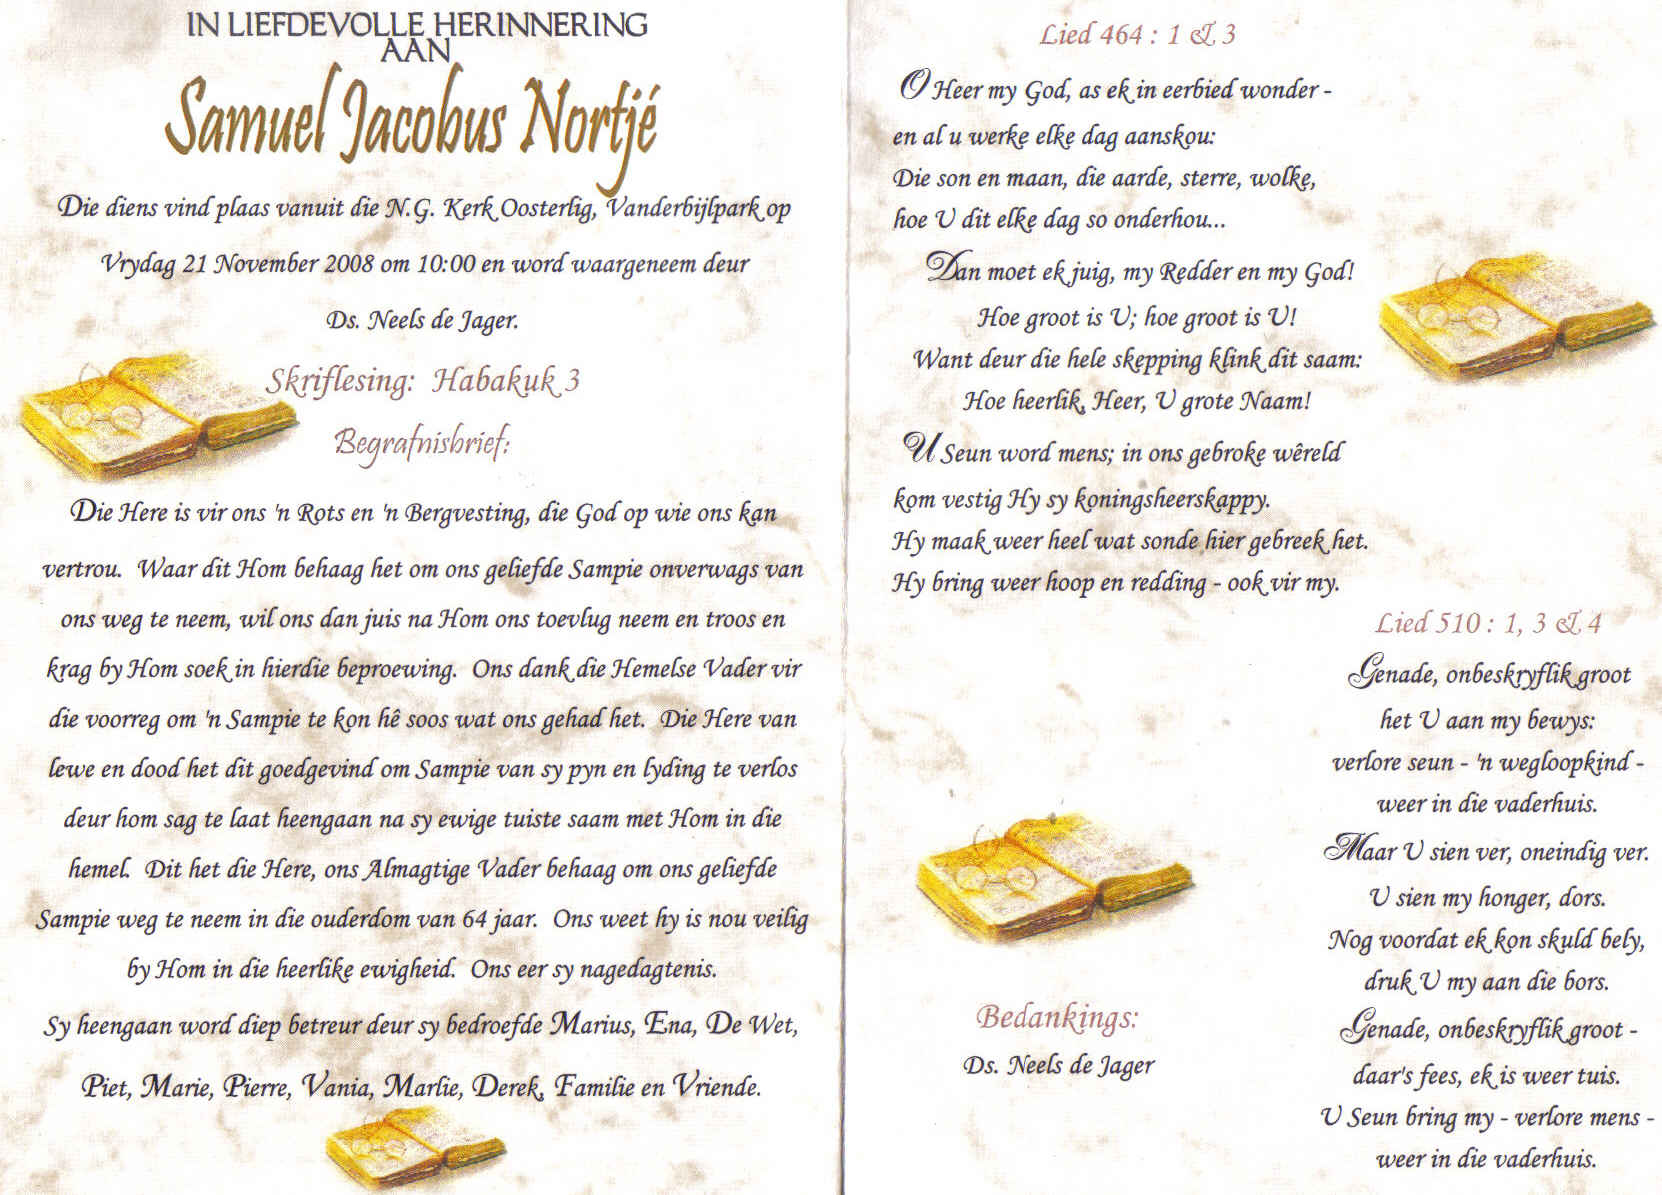 IN LIEFDEVOLLE HERINNERING
AAN
Samuel Jacobus Nortjé
Die diens vind plaas vanuit die N.G. Kerk Oosterlig, Vanderbijlpark op
Vrydag 21 November 2008 om 10:00 en word waargeneem deur
Ds. Neels de Jager.
Skriflesing: Habakuk 3
Begrafnisbrief:
Die Here is vir ons 'n Rots en 'n Bergvesting, die God op wie ons kan
vertrou. Waar dit Hom behaag het om ons geliefde Sampie onverwags van
ons weg te neem, wil ons dan juis na Hom ons toevlug neem en troos en
krag by Hom soek in hierdie beproewing. Ons dank die Hemelse Vader vir
die voorreg om 'n Sampie te kon hê soos wat ons gehad het. Die Here van
lewe en dood het dit goedgevind om Sampie van sy pyn en lyding te verlos
deur hom sag te laat heengaan na sy ewige tuiste saam met Hom in die
hemel. Dit het die Here, ons Almagtige Vader behaag om ons geliefde
Sampie weg te neem in die ouderdom van 64 jaar. Ons weet hy is nou veilig
by Hom in die heerlike ewigheid. Ons eer sy nagedagtenis.
Sy heengaan word diep betreur deur sy bedroefde Marius, Ena, De Wet,
Piet, Marie, Pierre, Vania, Marlie, Derek, Familie en Vriende.
Lied 464 : 1 & 3
O Heer my God, as ek in eerbied wonder -
en al u werke elke dag aanskou:
Die son en maan, die aarde, sterre, wolke,
hoe U dit elke dag so onderhou...
Dan moet ek juig, my Redder en my God!
Hoe groot is U; hoe groot is U!
Want deur die hele skepping klink dit saam:
Hoe heerlik, Heer, U grote Naam!
U Seun word mens; in ons gebroke wêreld
kom vestig Hy sy koningsheerskappy.
Hy maak weer heel wat sonde hier gebreek het.
Hy bring weer hoop en redding - ook vir my.
Lied 510 : 1, 3 & 4
Genade, onbeskryflik groot
het U aan my bewys:
verlore seun - 'n wegloopkind -
weer in die vaderhuis.
Maar U sien ver, oneindig ver.
U sien my honger, dors.
Nog voordat ek kon skuld bely,
druk U my aan die bors.
Genade, onbeskryflik groot -
daar's fees, ek is weer tuis.
U Seun bring my - verlore mens -
weer in die vaderhuis.
Bedankings:
Ds. Neels de Jager